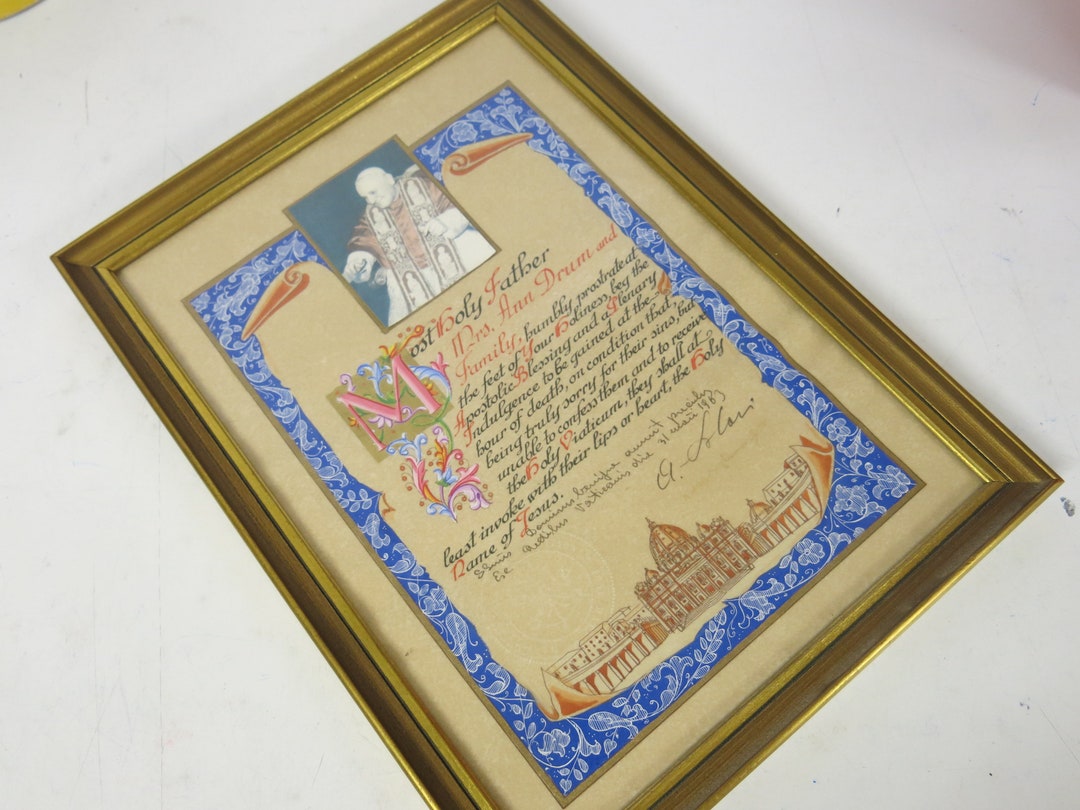 Most Holy Father
Mrs. Ann Drum and
Family, humbly prostrate at
the feet of Your Holiness, beg the
Apostolic Blessing and a Plenary
Indulgence to be gained at the
hour of death, on condition that,
being truly sorry for their sins, but
unable to confess them and to receive
the Holy Viaticum, they shall at
least invoke with their lips or heart, the Holy
Name of Jesus.
Dominus benigne annuit
Ex Aedibus Vaticanis die 31 Maii